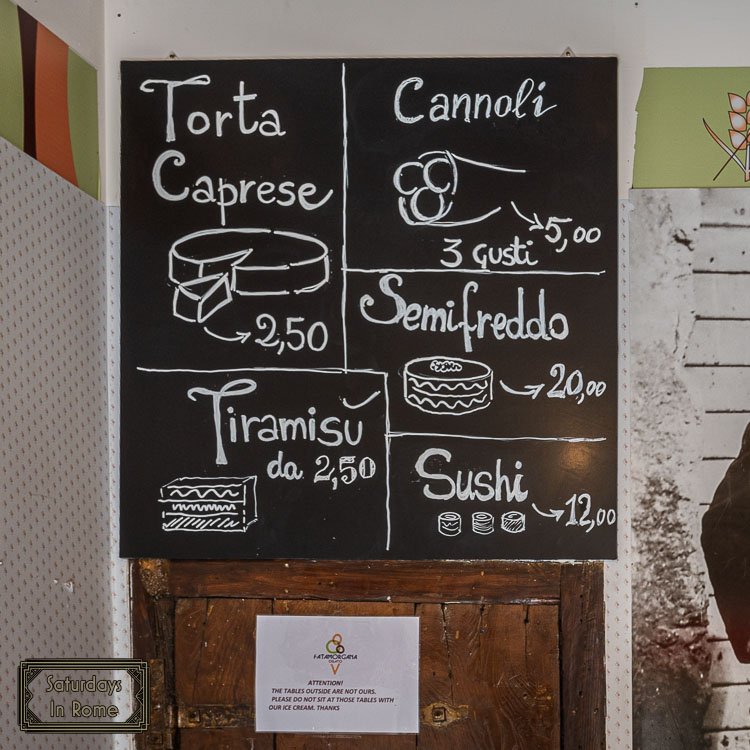 Torta
Caprese
2,50
Cannoli
5,00
3 Gusti
Semifreddo
20,00
Tiramisù
da 2,50
Sushi
12,00
FATAMORGANA
GELATO
ATTENTION!
THE TABLES OUTSIDE ARE NOT OURS.
PLEASE DO NOT SIT AT THOSE TABLES WITH
OUR ICE CREAM. THANKS
Saturdays
In Rome